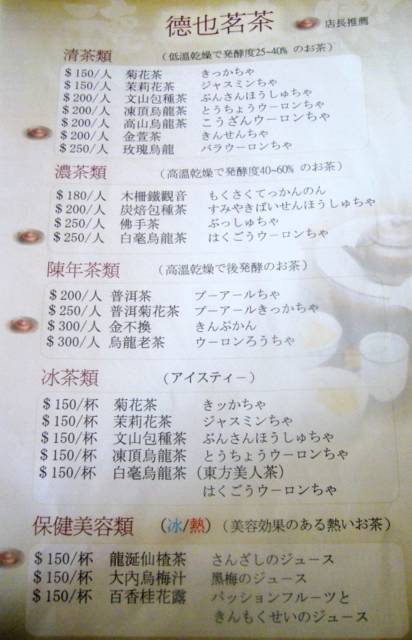 德也茗茶
店長推薦
清茶類 （低温乾燥で発酵度25~40% のお茶）
$150/人 菊花茶 きっかちゃ
$150/人 茉莉花茶 ジャスミンちゃ
$200/人 文山包種茶 ぶんさんほうしゅちゃ
$200/人 凍頂烏龍茶 とうちょうウーロンちゃ
$200/人 高山烏龍茶 こうざんウーロンちゃ
$200/人 金萱茶 きんせんちゃ
$250/人 玫瑰烏龍 バラウーロンちゃ
濃茶類 （高温乾燥で発酵度40~60% のお茶）
$180/人 木柵鐵觀音 もくさくてっかんのん
$200/人 炭焙包種茶 すみやきばいせんほうしゅちゃ
$250/人 佛手茶 ぶっしゅちゃ
$250/人 白毫烏龍茶 はくごうウーロンちゃ
陳年茶類 （高温乾燥で後発酵のお茶）
$200/人 普洱茶 プーアールちゃ
$250/人 普洱菊花茶 プーアールきっかちゃ
$300/人 金不換 きんぷかん
$300/人 烏龍老茶 ウーロンろうちゃ
冰茶類 （アイスティー）
$150/杯 菊花茶 きッかちゃ
$150/杯 茉莉花茶 ジャスミンちゃ
$150/杯 文山包種茶 ぶんさんほうしゅちゃ
$150/杯 凍頂烏龍茶 とうちょうウーロンちゃ
$150/杯 白毫烏龍茶（東方美人茶）
はくごうウーロンちゃ
保健美容類 （冰/熱）（美容効果のある熱いお茶）
$150/杯 龍涎仙楂茶 さんざしのジュース
$150/杯 大內烏梅汁 黑梅のジュース
$150/杯 百香桂花露 パッションフルーツと
きんもくせいのジュース